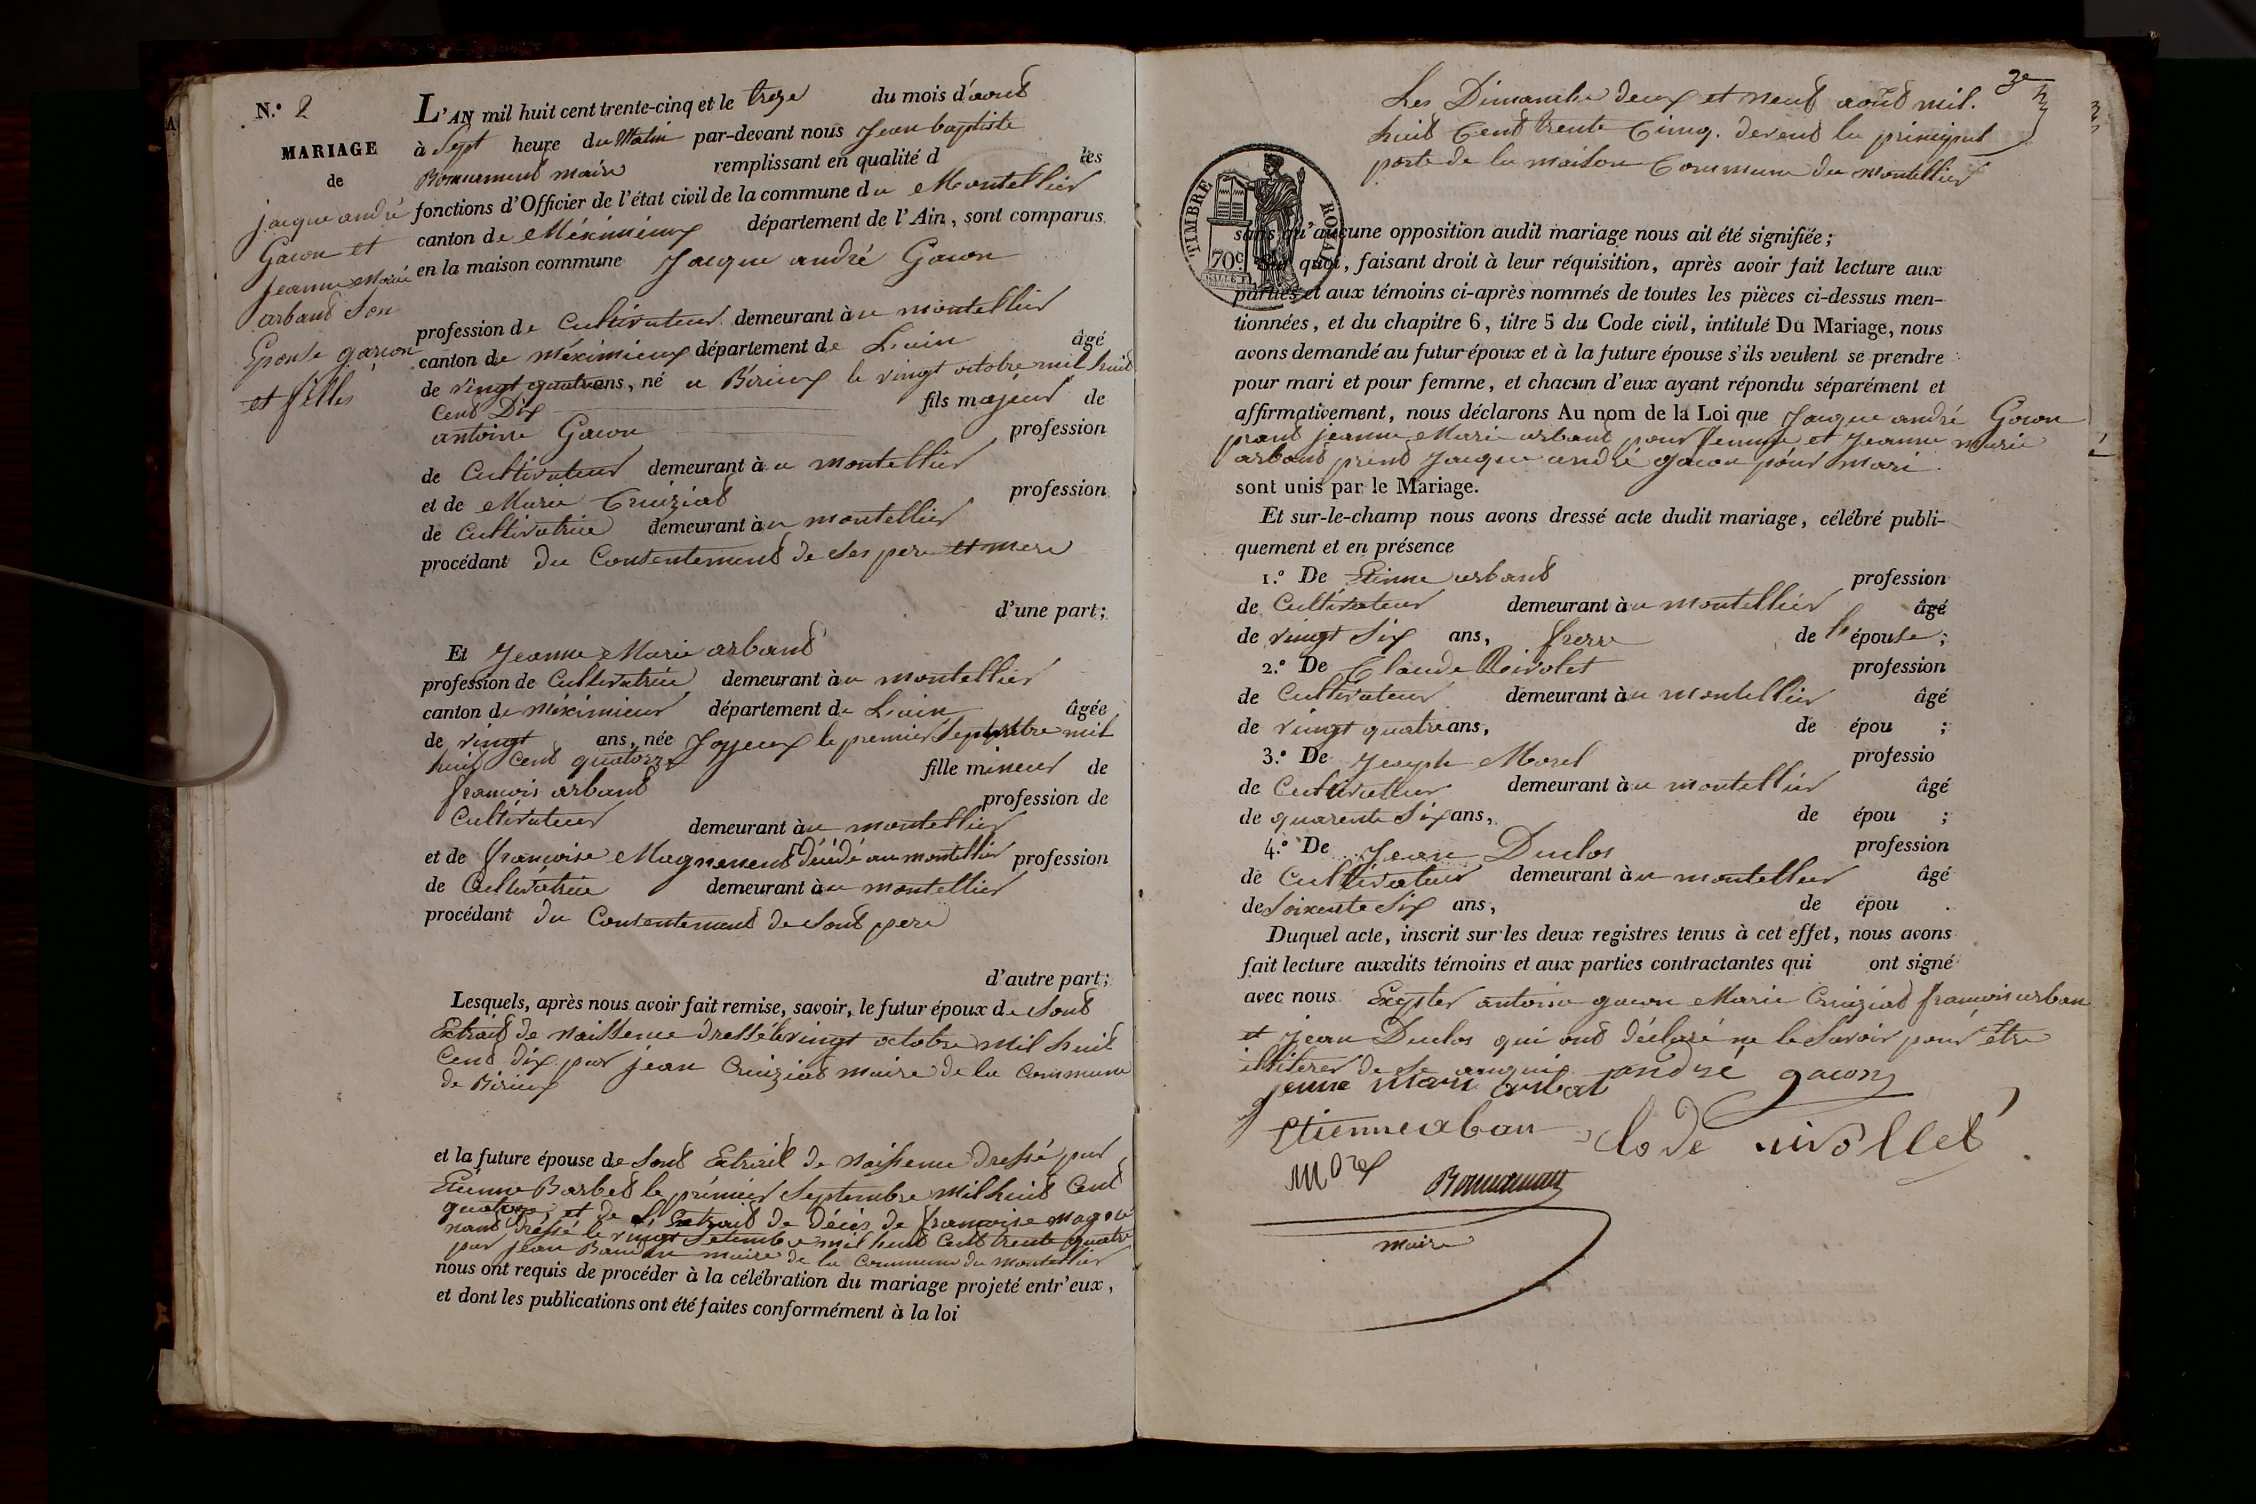 N.° 2
MARIAGE
de
jacque andré
Gacon et
Jeanne Marie
arband Son
Epouse garcon
et filles
L'AN mil huit cent trente-cinq et le treze du mois d'aout
à Sept heure du Matin par-devant nous Jean baptiste
maire remplissant en qualité d les
fonctions d'Officier de l'état civil de la commune du Montellier
canton de Méximieux département de l'Ain, sont comparus
en la maison commune Jacque andré Gacon
profession de Cultivateur demeurant à u montellier
canton de méximieux département de L'ain âgé
de vingt quatre ans, né a Birieux le vingt octobre mil huit
Cent Dix fils majeur de
antoine Gacon profession
de Cultivateur demeurant à u montellier
et de Marie Cruiziat profession
de Cultivatrice demeurant à u montellier
procédant du Consentement de Ses pere et mere
d'une part;
Et Jeanne Marie arband
profession de Cultivatrice demeurant à u montellier
canton de méximieux département de L'ain âgée
de vingt ans, née Joyeux le premier Septembre mil
huit Cent quatorze fille mineur de
francois arband profession de
Cultivateur demeurant à u montellier
et de francoise Magnenent décédé au montellier profession
de Cultivatrice demeurant à u montellier
procédant du Consentement de Sont pere
d'autre part;
Lesquels, après nous avoir fait remise, savoir, le futur époux de Sont
Extrait de naissence dressé le vingt octobre mil huit
Cent dix par jean Cruiziat maire de la Commune
de Birieux
et la future épouse de Sont Extrait de naissence dressé par
Etienne Barbet le prémier Septembre mil huit Cent
quatorze, et de L'Extrait de décés de francoise magne
nant dressé le vingt Setembre mil huit Cent trente quatre
par jean maire de la Commune du montellier
nous ont requis de procéder à la célébration du mariage projeté entr'eux,
et dont les publications ont été faites conformément à la loi
3e
Les Dimanche deux et neuf août mil
huit Cent trente Cinq. devent la principal
porte de la maison Commune du montellier
TIMBRE ROYAL
70c
sans qu'aucune opposition audit mariage nous ait été signifiée;
Sur quoi, faisant droit à leur réquisition, après avoir fait lecture aux
parties et aux témoins ci-après nommés de toutes les pièces ci-dessus men-
tionnées, et du chapitre 6, titre 5 du Code civil, intitulé Du Mariage, nous
avons demandé au futur époux et à la future épouse s'ils veulent se prendre
pour mari et pour femme, et chacun d'eux ayant répondu séparément et
affirmativement, nous déclarons Au nom de la Loi que Jacque andré Gacon
prant jeanne Marie arband pour femme et Jeanne marie
arband prend Jacque andré gacon pour mari
sont unis par le Mariage.
Et sur-le-champ nous avons dressé acte dudit mariage, célébré publi-
quement et en présence
1.° De Etinne arband profession
de Cultivateur demeurant à u montellier âgé
de vingt Six ans, frerre de l'épouse;
2.° De Claude Rivolet profession
de Cultivateur demeurant à u montellier âgé
de vingt quatre ans, de épou ;
3.° De Joseph Morel professio
de Cultivateur demeurant à u montellier âgé
de quarente Six ans, de épou ;
4.° De Jean Duclos profession
de Cultivateur demeurant à u montellier âgé
de Soixente Six ans, de épou .
Duquel acte, inscrit sur les deux registres tenus à cet effet, nous avons
fait lecture auxdits témoins et aux parties contractantes qui ont signé
avec nous Exepter antoine gacon Marie Cruiziat francois arban
et jean Duclos qui ont déclaré ne le Savoir pour être
illiterer de ce anquis andré gacon
jenne Mari arbat
Etienne aban clode rivollet
morel
maire